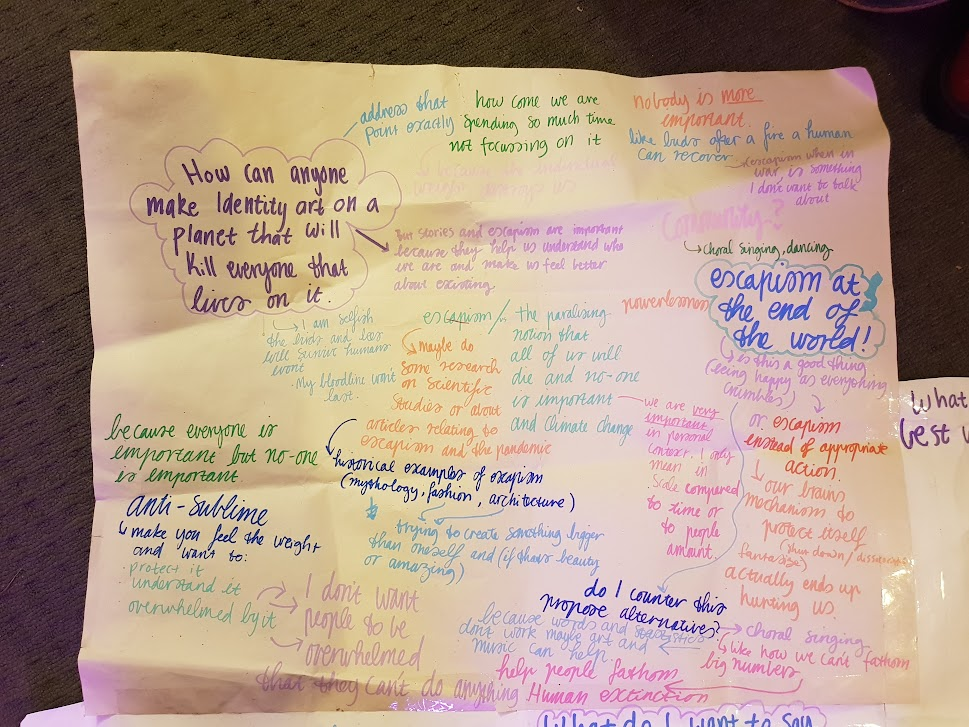 address that
point exactly
how come we are
spending so much time
not focussing on it
nobody is more
important.
like buds after a fire a human
can recover
escapism when in
war, is something
I dont want to talk
about
How can anyone
make Identity art on a
planet that will
kill everyone that
lives on it.
because the individual
But stories and escapism are important
because they help us understand who
we are and make us feel better
about existing
Community?
choral singing, dancing
escapism at
the end of
the world!!
powerlessness
I am selfish
the birds and bees
will survive humans
wont
My bloodline won't
last.
escapism / the paralising
notion that
all of us will
die and no-one
is important
and climate change
maybe do
some research
on scientific
studies or about
articles relating to
escapism and the pandemic
is this a good thing
(being happy as everything
crumbles)
or escapism
instead of appropriate
action.
our brains
mechanism to
protect itself
(shut down/
fantasize)
actually ends up
hurting us.
we are very
important
in personal
context. I only
mean in
scale compared
to time or
to people
amount.
because everyone is
important but no-one
is important
historical examples of escapism
(mythology, fashion, architecture)
trying to create something bigger
than oneself and (if thats beauty
or amazing)
anti-sublime
make you feel the weight
and want to:
protect it
understand it
overwhelmed by it
I don't want
people to be
overwhelmed
that they can't do anything
do I counter this
propose alternatives?
because words and
dont work maybe art and
music can help.
choral singing
like how we can't fathom
big numbers
help people fathom
Human extinction
What
best
What do I want to say